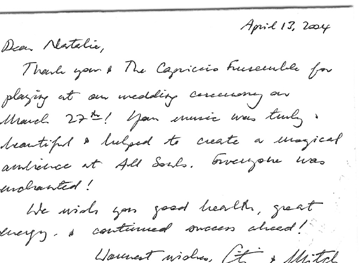 April 13, 2004
Dear Natalie,
Thank you & The Capriccio Ensemble for
playing at our wedding ceremony on
March 27th! Your music was truly
beautiful & helped to create a magical
ambience at All Souls. Everyone was
enchanted!
We wish you good health, great
energy, & continued success ahead!
Warmest wishes, & Mitch